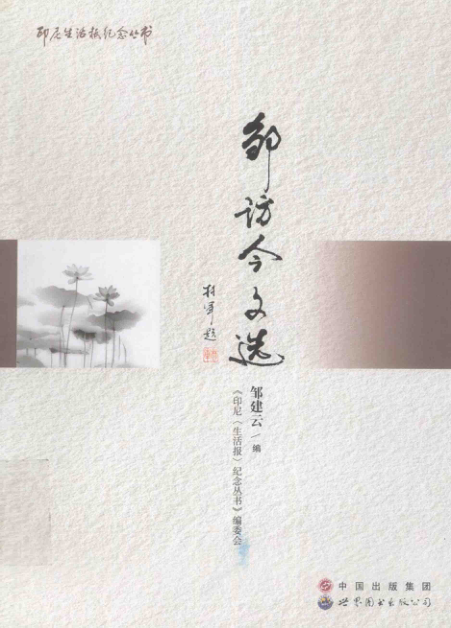 印尼生活报纪念丛书
邹访今文选
杜军题
邹建云/编
《印尼〈生活报〉纪念丛书》编委会
中国出版集团
世界图书出版公司